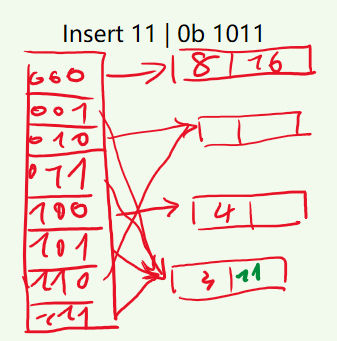 Insert 11 | 0b 1011
000 8 16
001
010
011
100 4
101
110 3 11
111